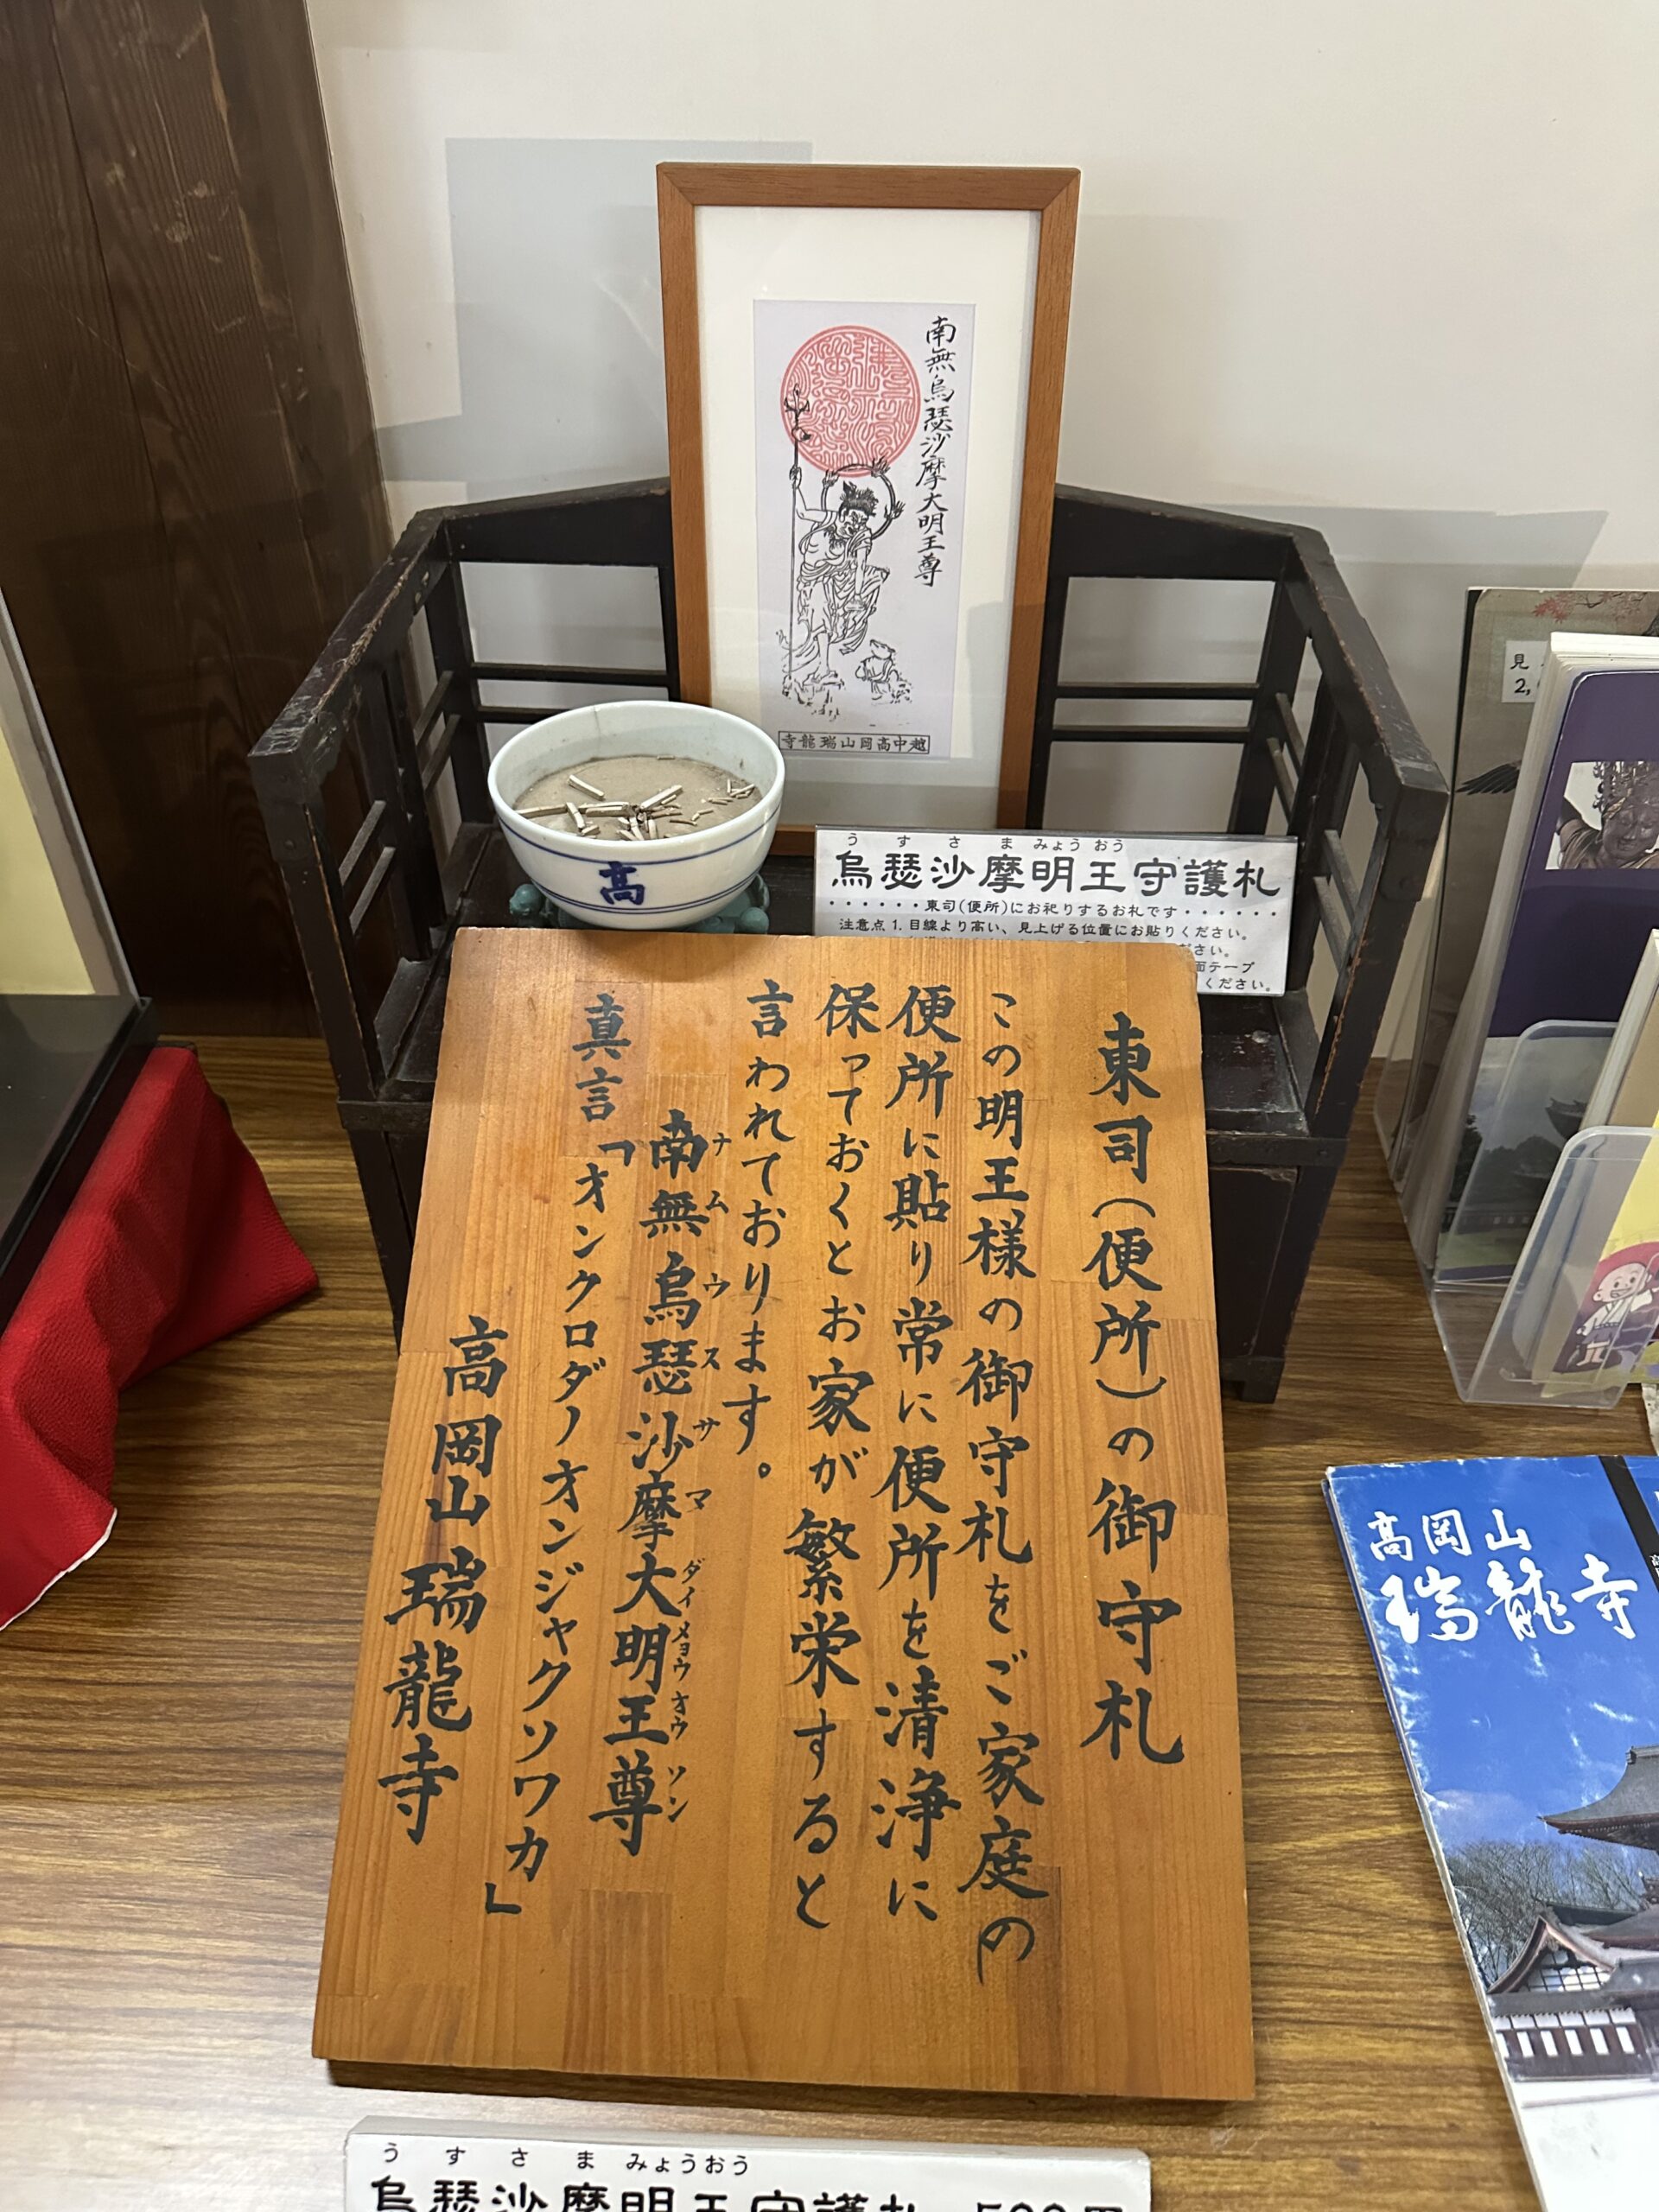 南無烏瑟沙摩大明王尊
越中高岡山瑞龍寺
高
うすさまみょうおう
烏瑟沙摩明王守護札
・・・・・・東司(便所)にお祀りするお札です・・・・・・
注意点 1. 目線より高い、見上げる位置にお貼りください。
ださい。
面テープ
ください。
東司(便所)の御守札
この明王様の御守札をご家庭の
便所に貼り常に便所を清浄に
保っておくとお家が繁栄すると
言われております。
ナムウスサマダイメョウオウソン
南無烏瑟沙摩大明王尊
真言「オンクロダノオンジャクソワカ」
高岡山瑞龍寺
見
2,
高岡山
瑞龍寺
うすさまみょうおう
烏瑟沙摩明王守護札 500円